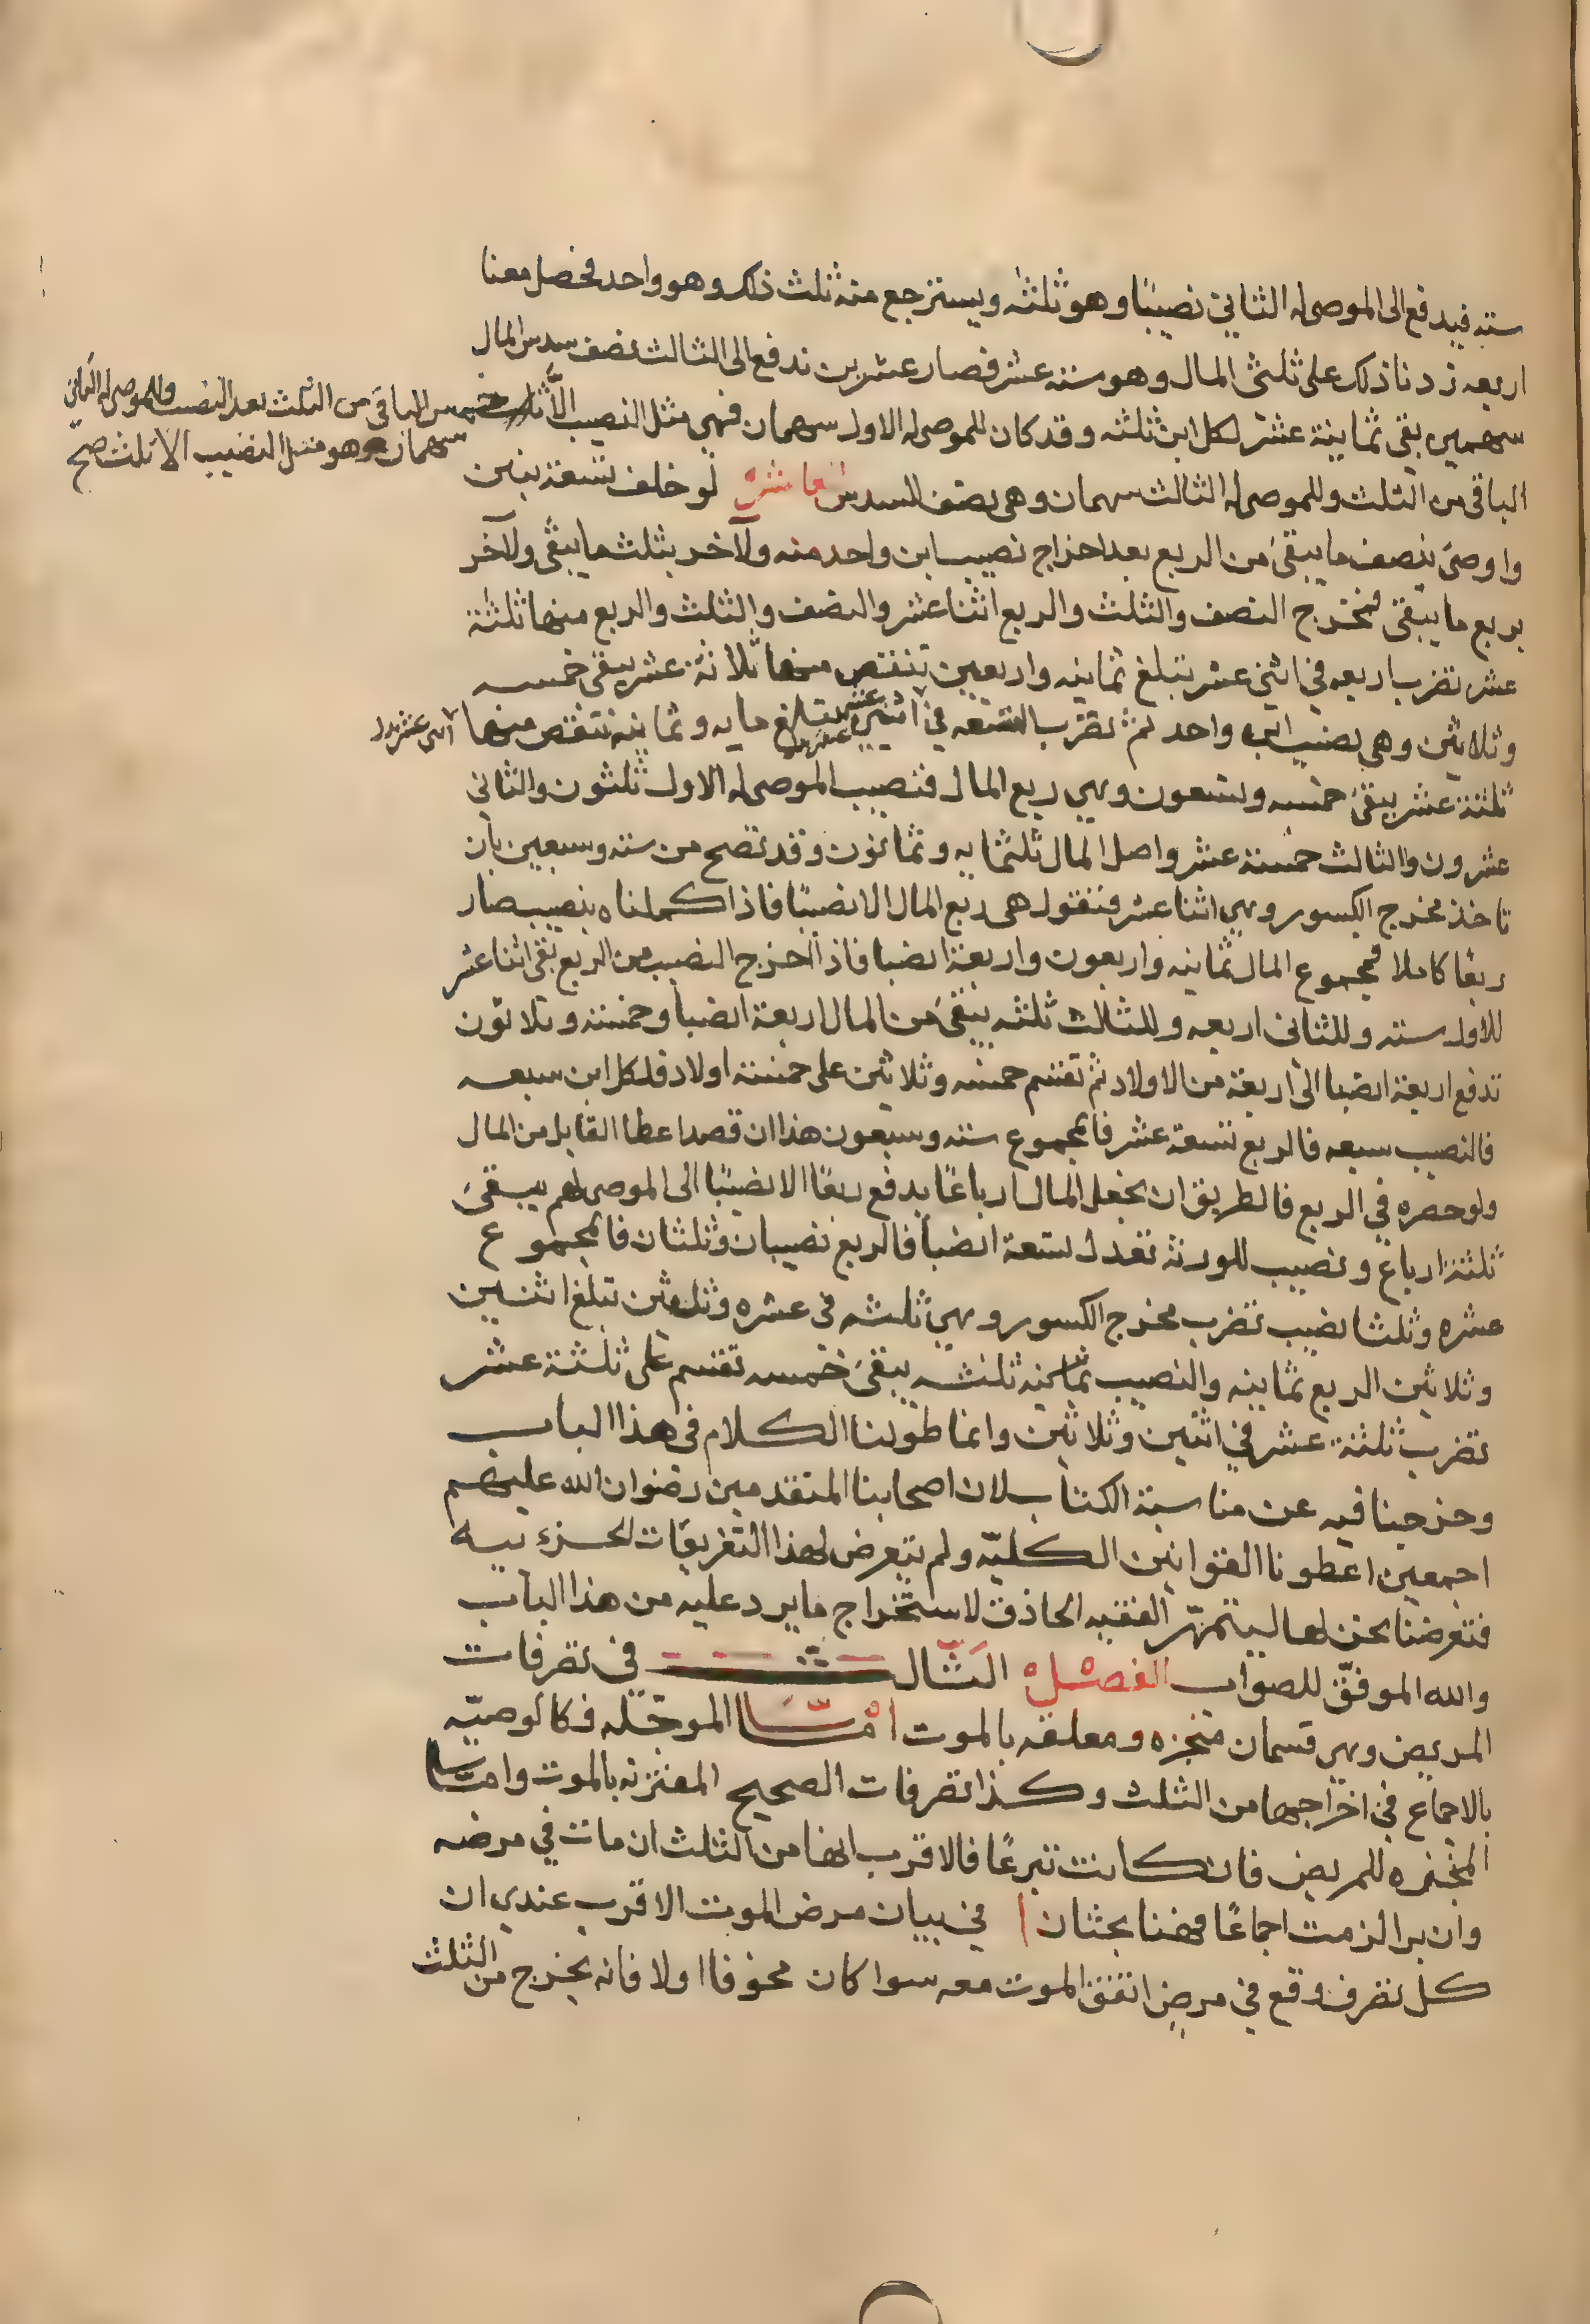 سته فيدفع الى الموصى له الثاني نصيبًا وهو ثلثه ويسترجع منه ثلث ذلك وهو واحد فحصل معنا
اربعه زدنا ذلك على ثلثى المال وهو سته عشر فصار عشرين ندفع الى الثالث نصف سدس المال
سهمين يبقى ثمانية عشر لكل ابن ثلثه وقد كان للموصى له الاول سهمان فهى مثل النصيب الّا ثلث خمس الباقى من الثلث بعد النصيب وللموصى له الثانى
سهمان وهو مثل النصيب الا ثلث صح
الباقى من الثلث وللموصى له الثالث سهمان وهى نصف السدس العاشره لو خلف تسعة بنين
واوصى بنصف ما يبقى من الربع بعد اخراج نصيب ابن واحد منه ولآخر بثلث ما يبقى ولآخر
بربع ما يبقى فمخرج النصف والثلث والربع اثنا عشر والنصف والثلث والربع منها ثلثة
عشر نضرب اربعه في اثنى عشر تبلغ ثمانيه واربعين تنتقص منها ثلاثة عشر يبقى خمسه
وثلاثين وهى نصيب ابن واحد ثم نضرب التسعه في اثنى عشر تبلغ مايه وثمانيه تنتقص منها
ثلثة عشر يبقى خمسه وتسعون وهي ربع المال فنصيب الموصى له الاول ثلثون والثانى
عشرون والثالث خمسة عشر واصل المال ثلثمايه وثمانون وقد تصح من سته وسبعين بان
تاخذ مخرج الكسور وهي اثنا عشر فنقول هى ربع المال الا نصيبًا فاذا كملناه بنصيب صار
ربعًا كاملا فمجموع المال ثمانيه واربعون واربعة انصبا فاذا اخرج النصيب من الربع بقى اثنا عشر
للاول سته وللثانى اربعه وللثالث ثلثه يبقى من المال اربعة انصبا وخمسة وثلاثون
تدفع اربعة انصبا الى اربعة من الاولاد ثم تقسم خمسه وثلاثين على خمسة اولاد فلكل ابن سبعه
فالنصيب سبعه فالربع تسعة عشر فالمجموع سته وسبعون هذا ان قصد اعطا القايل من المال
ولو حصره في الربع فالطريق ان يجعل المال ارباعًا يدفع ربعًا الا نصيبًا الى الموصى لهم يبقى
ثلثة ارباع ونصيب للورثه تعدل تسعة انصبا فالربع نصيبان وثلثان فالمجموع
عشره وثلثا نصيب تضرب مخرج الكسور وهي ثلثه فى عشره وثلثين تبلغ اثنين
وثلاثين الربع ثمانيه والنصيب ثلثه يبقى خمسه تقسم على ثلثة عشر
تضرب ثلثة عشر في اثنين وثلاثين وانما طولنا الكلام فى هذا الباب
وخرجنا فيه عن مناسبة الكتاب لان اصحابنا المتقدمين رضوان الله عليهم
اجمعين اعطونا القوانين الكليّه ولم يتعرض لهذا التفريعات الجزءييه
فتعرضنا نحن لها ليتمهّر الفقيه الحاذق لاستخراج ما يرد عليه من هذا الباب
والله الموفّق للصواب الفصل الثّالث في تصرفات
المريض وهي قسمان منجزه ومعلقه بالموت امّا الموجّله فكالوصيّه
بالاجماع في اخراجها من الثلث وكذا تصرفات الصحيح المقترنه بالموت وامّا
المنجزه للمريض فان كانت تبرعًا فالاقرب انها من الثلث ان مات في مرضه
وان برا لزمت اجماعًا فهنا بحثان ا في بيان مرض الموت الاقرب عندي ان
كل تصرف وقع في مرض اتفق الموت معه سوا كان مخوفا اولا فانه يخرج من الثلث